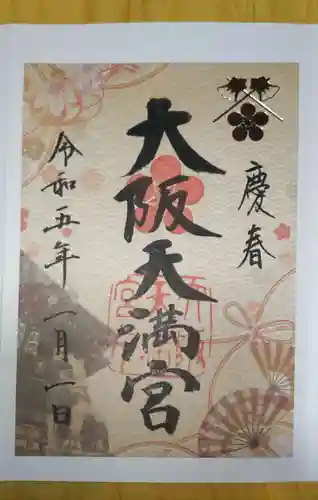 慶春
大阪天満宮
令和五年一月一日